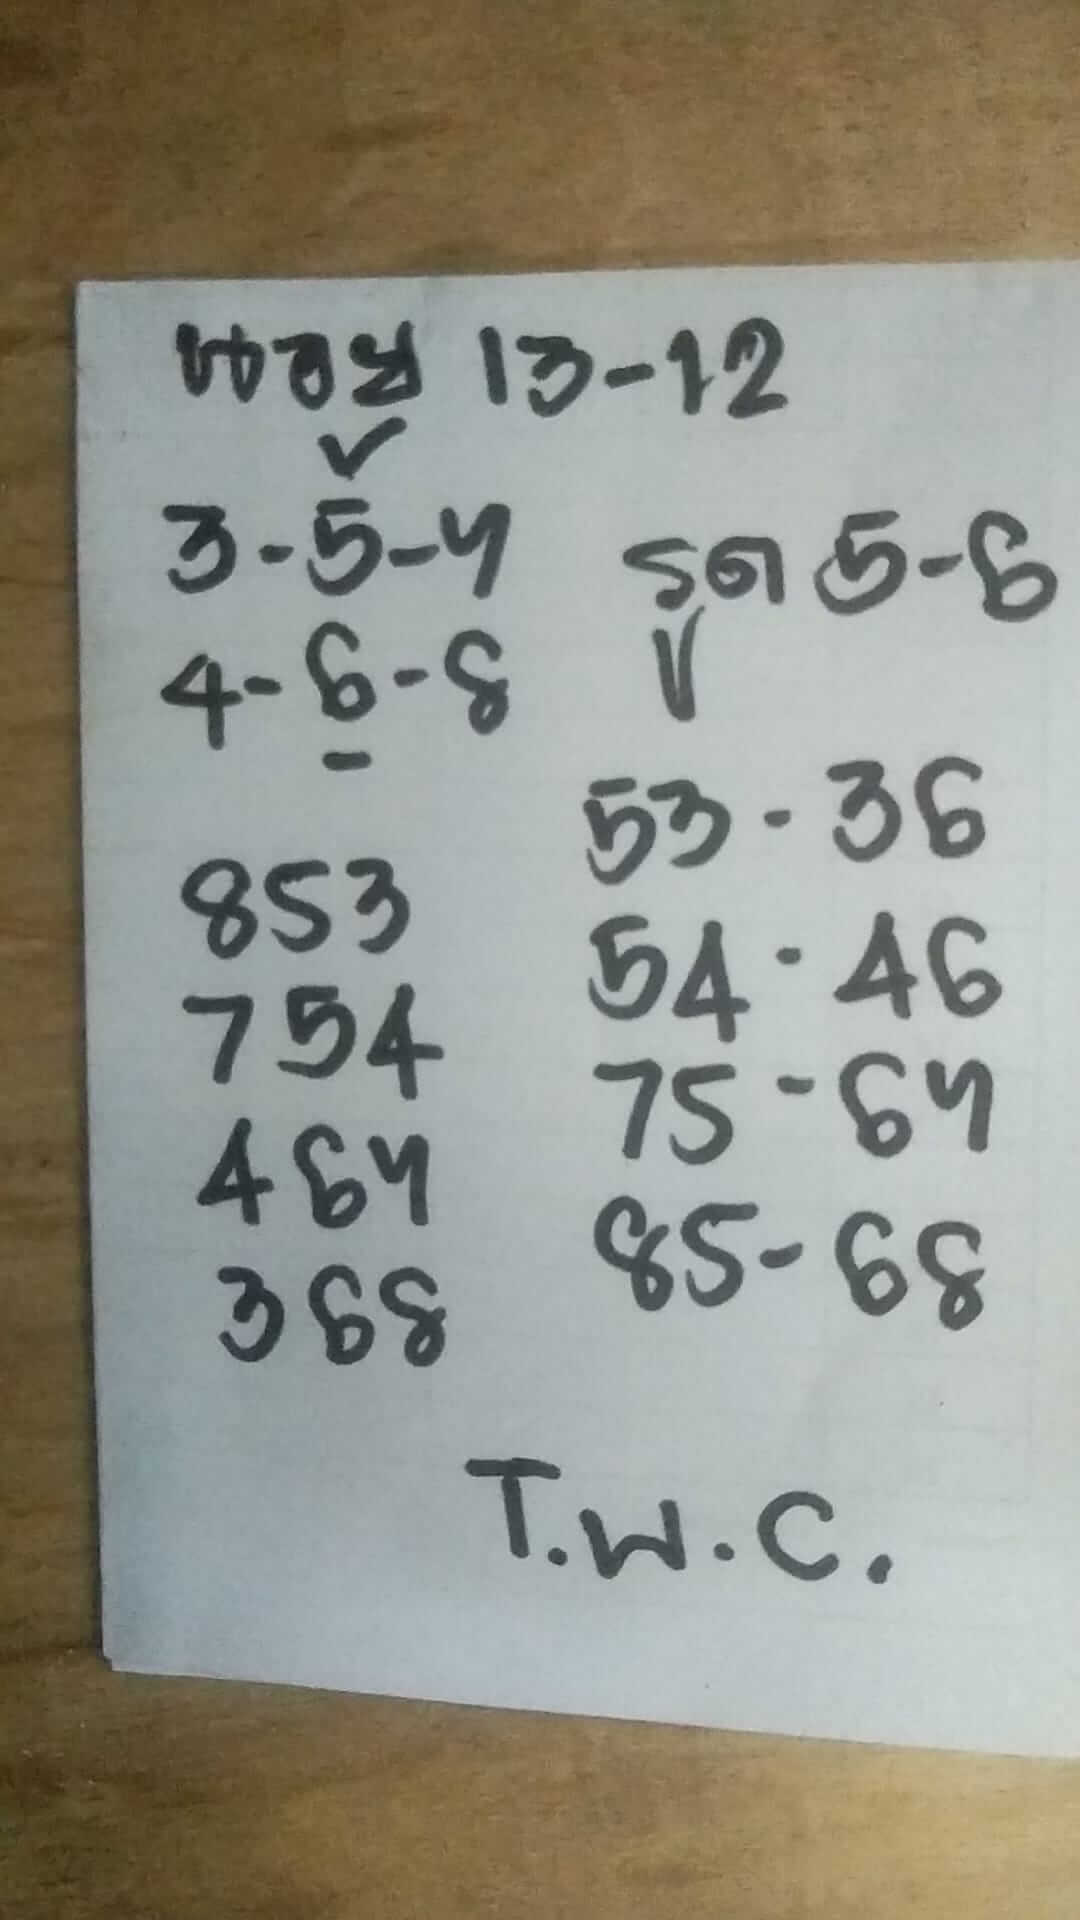 นอย 13-12
3-5-7
4-6-8
รูด 5-6
853
754
467
368
53-36
54-46
75-67
85-68
T.W.C.